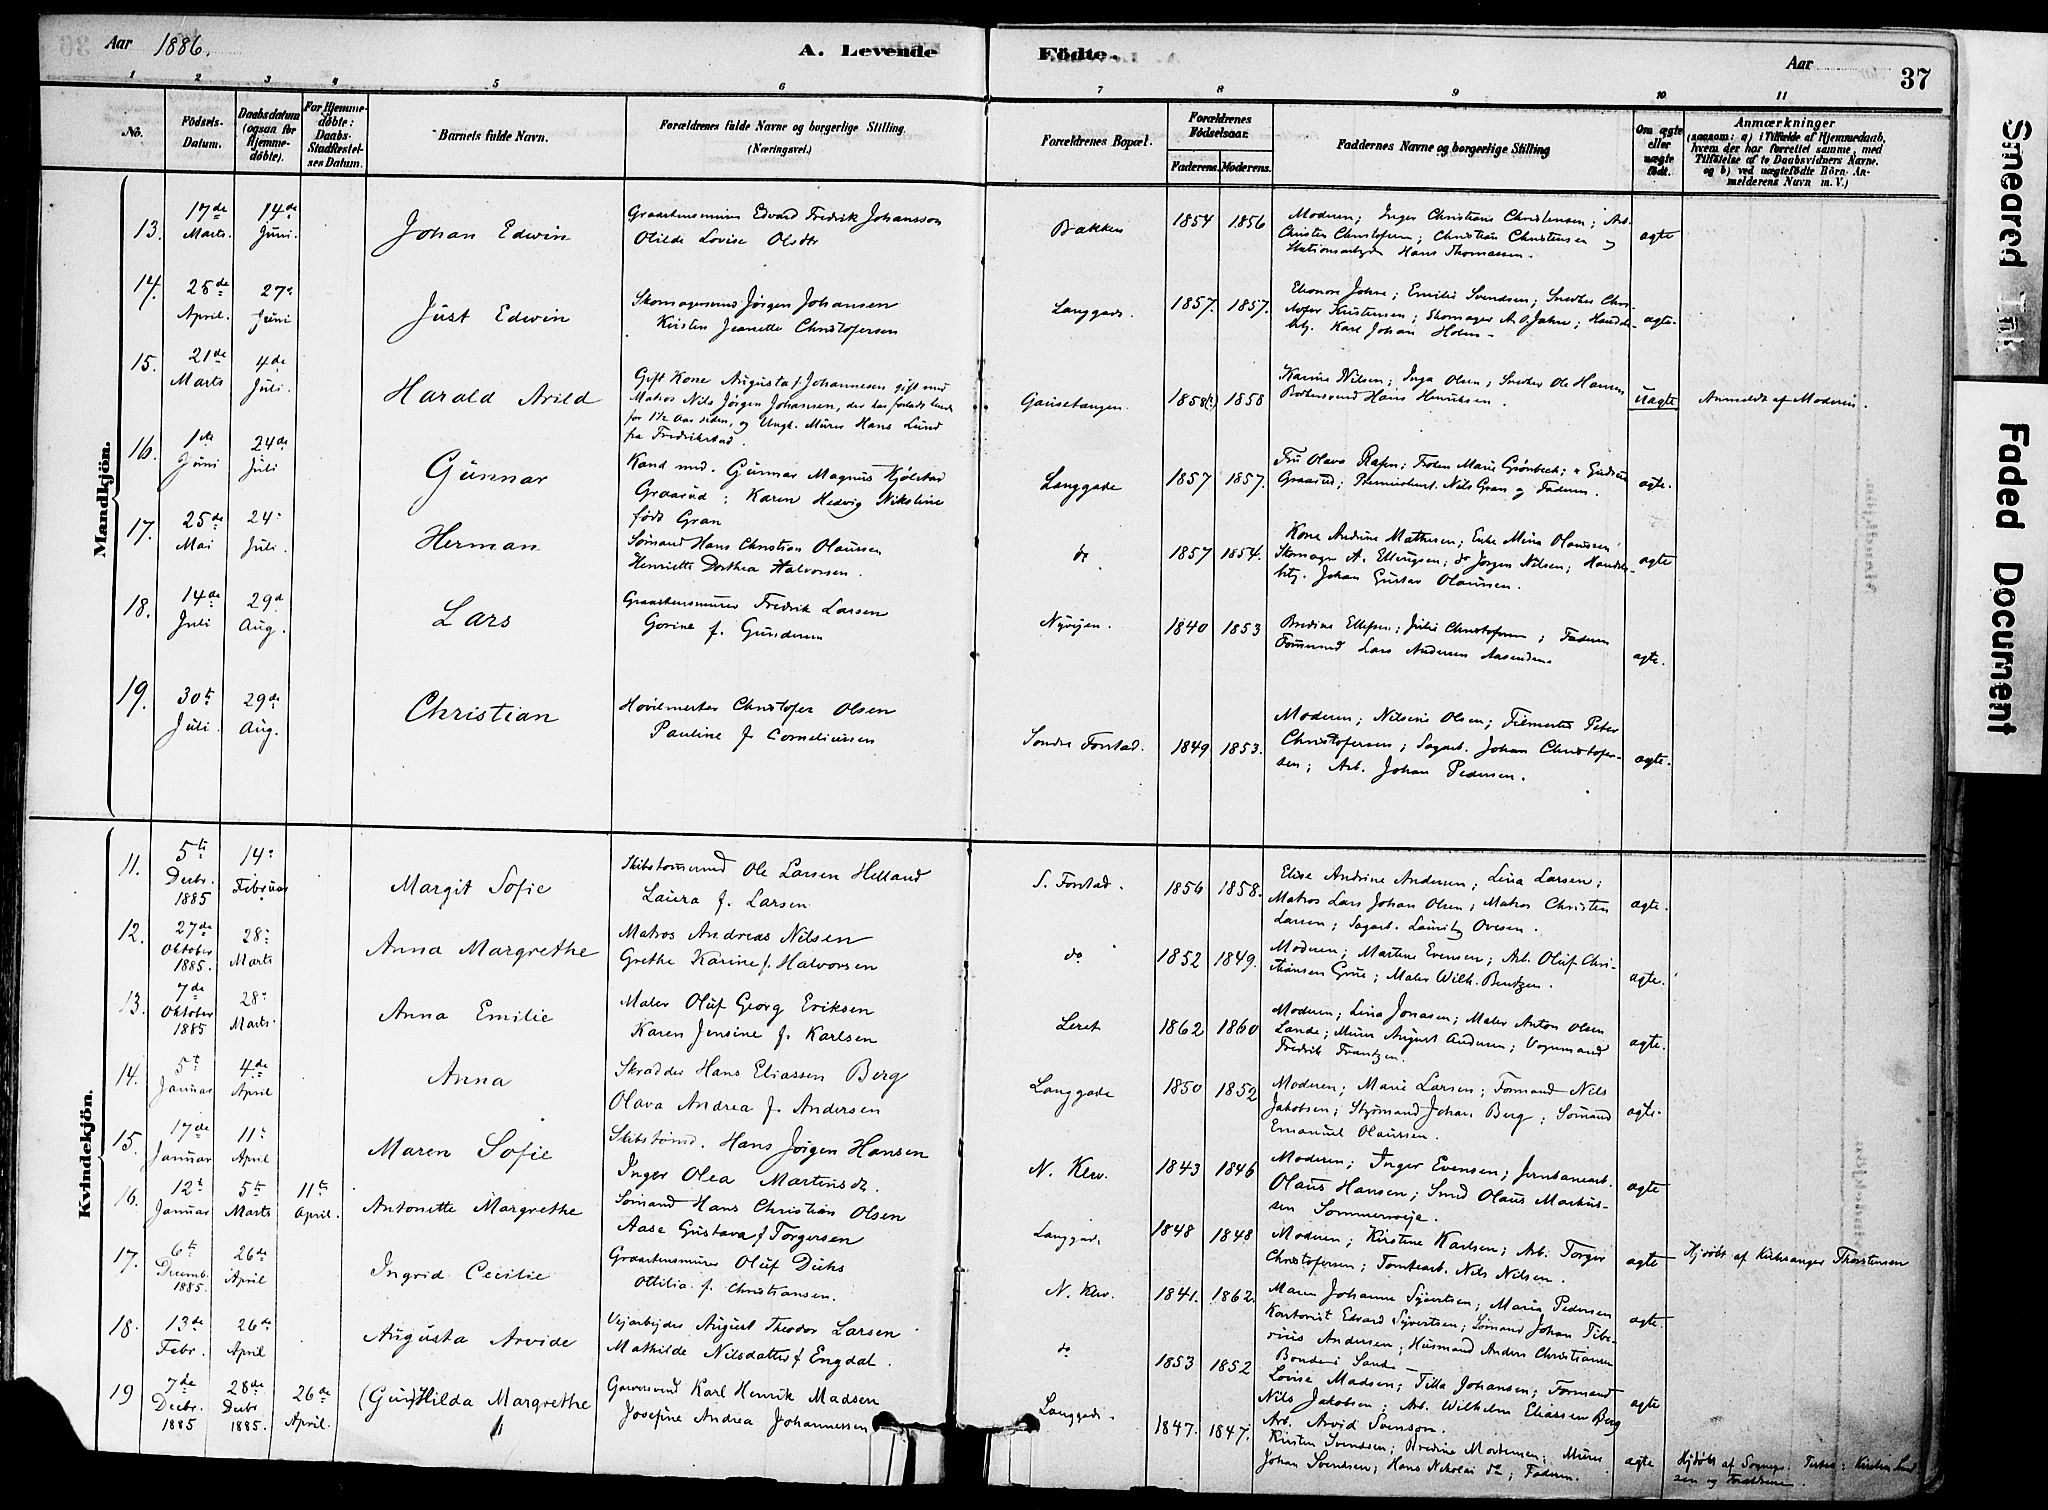 Aar 1886.
A. Levende
Födte.
Aar
37
1 2 3 4 5 6 7 8 9 10 11
No.
Födsels-Datum.
Daabsdatum (ogsaa for Hjemmedöbte).
For Hjemmedöbte: Daabs-Stadfæstelses Datum.
Barnets fulde Navn.
Forældrenes fulde Navne og borgerlige Stilling. (Næringsvei.)
Forældrenes Bopæl.
Forældrenes Födselsaar.
Faderens. Moderens.
Faddernes Navne og borgerlige Stilling
Om ægte eller uægte födt.
Anmærkninger
(saasom: a) i Tilfælde af Hjemmedaab, hvem der har forrettet samme, med Tilföielse af to Daabsvidners Navne, og b) ved uægtefödte Börn Anmelderens Navn m. V.)
Mandkjön.
13. 17de Marts. 14de Juni. Johan Edwin
Edvard Fredrik Johansson
Otilde Lovise Olsdtr
Bakken 1854 1856
Moderen; Inger Christians Christensen; Arb.
Christen Christofersen; Christian Christensen og
Hans Thomassen.
ægte
14. 25de April. 27de Juni Just Edwin
Jørgen Johansen
Kirsten Jeanette Christofersen
Langgade 1857. 1857.
Eleonore Jahre; Emilie Svendsen; Snedker Chris-
tofer Kristensen; Skomager A. O. Jahre; Handels-
btj. Karl Johan Holm.
ægte.
15. 21de Marts 4de Juli. Harald Arild
Gift Kone Augusta f. Johannesen gift med
Matros Nils Jørgen Johansen, der har forladt hende
for 1½ Aar siden, og Ungk. Murer Hans Lund
fra Fredrikstad.
Gausetangen. 1858(?) 1858
Karine Nilsen; Inga Olsen; Snedker Ole Hansen
Hans Henriksen.
Uægte
Anmeldt af Moderen.
16. 1ste Juni 24de Juli Gunnar
Kand. med. Gunnar Magnus Kjølstad
Graarud; Karen Hedvig Nikoline
født Gran
Langgade 1857 1857.
Fru Olava Rafen; Frøken Marie Grønbech; " Gudrun
Graarud; Nils Gran og Faderen.
ægte.
17. 25de Mai 24de Juli. Herman
Sømand Hans Christian Olaussen
Henriette Dorthea Halvorsen.
do 1857 1854.
Kone Andrine Mathisen; Enke Mina Olaussen
Skomager A. Ellingsen; do Jørgen Nilsen; Handels-
btj. Johan Gustav Olaussen.
ægte
18. 14de Juli 29de Aug. Lars
Graastensmurer Fredrik Larsen
Gorine f. Gundersen
Nyvejen. 1840 1853
Bredine Ellefsen; Julie Christofersen; Faderen
Tømmermd Lars Andersen Aasendene
ægte.
19. 30te Juli. 29de Aug. Christian
Høvilmester Christofer Olsen
Pauline f. Corneliussen
Søndre Fonstad. 1849 1853.
Moderen; Nilsine Olsen; Peter
Christofersen; Sagarb. Johan Christofer-
sen; Arb. Johan Pedersen.
ægte.
Kvindekjön.
11. 5te Decbr. 1885 14de Februar Margit Sofie
Skibstømmermd Ole Larsen Helland
Laura f. Larsen
S. Fonstad. 1856 1858.
Elise Andrine Andersen; Lina Larsen;
Matros Lars Johan Olsen; Matros Christen
Larsen; Sagarb. Lauritz Ovesen.
ægte.
12. 27de Oktober 1885. 28de Marts Anna Margrethe
Matros Andreas Nilsen
Grethe Karine f. Halvorsen
do 1852 1849.
Moderen; Martine Evensen; Arb. Oluf Chri-
stiansen Grue; Maler Wilh. Bentzen.
ægte.
13. 7de Oktober 1885 28de Marts. Anna Emilie
Maler Oluf Georg Eriksen
Karen Jensine f. Karlsen
Leret 1862 1860
Moderen; Lina Jonasen; Maler Anton Olsen
Lande; Murer August Andersen; Vognmand
Fredrik Frantzen.
ægte.
14. 5te Januar 4de April Anna
Skrædder Hans Eliassen Berg
Olava Andrea f. Andersen
Langgade 1850 1852
Moderen; Marie Larsen; Formand Nils
Jakobsen; Styrmand Johan Berg; Sømand
Emanuel Olaussen.
ægte.
15. 17de Januar 11te April Maren Sofie
Skibstømd. Hans Jørgen Hansen
Inger Olea Martinsdr.
N. Klev. 1843 1846
Moderen; Inger Evensen; Jernbanearb.
Olaus Hansen; Smed Olaus Markus-
sen Sommerveje.
ægte
16. 12te Januar 5te Marts 11te April. Antonette Margrethe
Sømand Hans Christian Olsen
Aase Gustava f. Torgersen
Langgade 1848 1848
Moderen; Kirstine Karlsen; Arb. Torger
Christofersen; Tomtearb. Nils Nilsen.
ægte
Hjdøbt af Kirkesanger Thorstensen
17. 6te Decemb. 1885. 26de April Ingrid Cecilie
Graastensmurer Oluf Dicks
Ottilia f. Christiansen.
N. Klev. 1841. 1862.
Maren Johanne Syvertsen; Maria Pedersen
Edvard Syvertsen; Sømand Johan Tibe-
rius Andersen; Husmand Anders Christiansen
Bonden i Sande
ægte.
18. 13de Febr. 26de April Augusta Arvide
Vejarbejder August Theodor Larsen
Mathilde Nilsdatter f. Engdal.
do 1853 1852
Lovise Madsen; Tilla Johansen; Formand
Nils Jakobsen; Arb. Wilhelm Eliassen Berg
Arb. Arvid Svenson.
ægte
19 7de Decbr. 1885 28de Decbr 1885. 26de April. (Gun)Hilda Margrethe
Garversvend Karl Henrik Madsen
Josefine Andrea Johannessen
Langgade 1847. 1847.
Kirsten Svendsen; Bredine Mortensen; Murer
Johan Svendsen; Hans Nikolai do; Faderen.
ægte
Hjdøbt af Sognepr. Testes: Kirsten Svend-
sen og Forældrene.
Smeared Ink
Faded Document